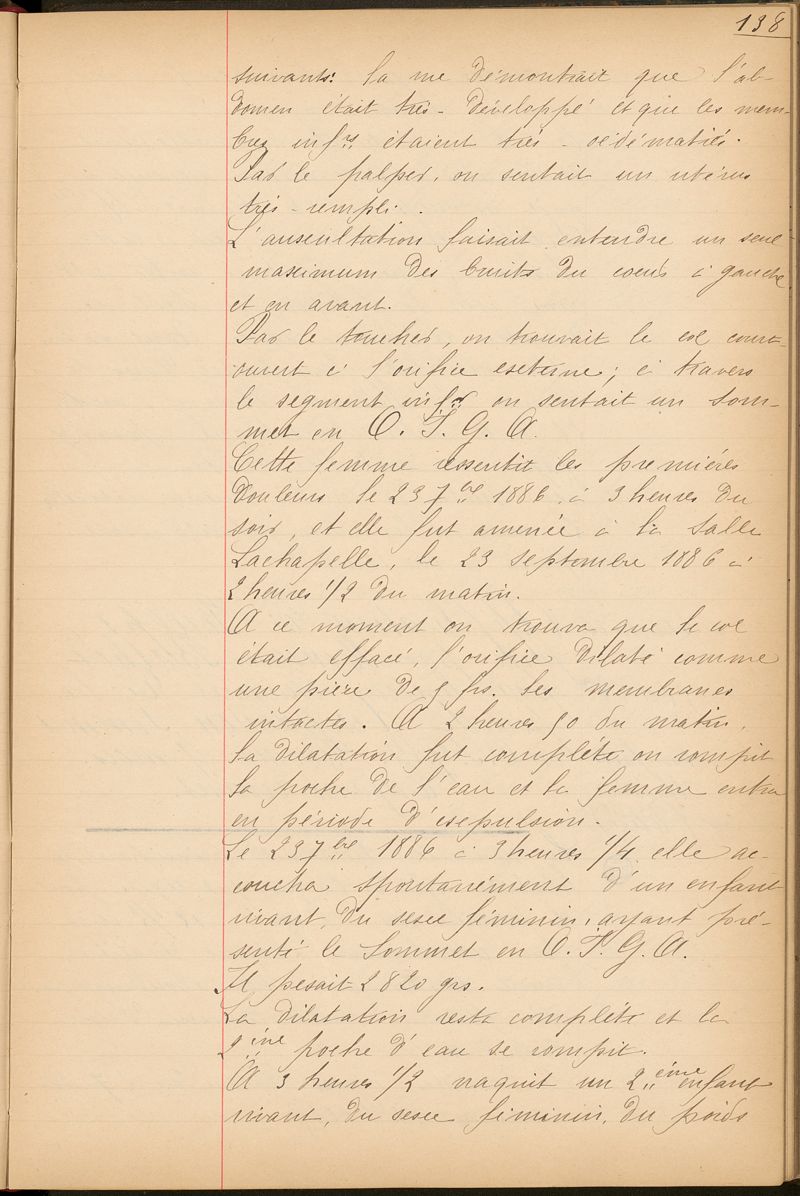 138
suivants: la vue démontrait que l'ab-
domen était très-développé et que les mem-
bres infrs étaient très-oedématiés.
Par le palper, on sentait un utérus
très-rempli.
L'auscultation faisait entendre un seul
maximum des bruits du coeur à gauche
et en avant.
Par le toucher, on trouvait le col court
ouvert à l'orifice externe; à travers
le segment infr on sentait un som-
met en O. I. G. A.
Cette femme ressentit les premières
douleurs le 23 7bre 1886 à 3 heures du
soir, et elle fut amenée à la salle
Lachapelle, le 23 septembre 1886 à
2 heures 1/2 du matin.
A ce moment on trouva que le col
était effacé, l'orifice dilaté comme
une pièce de 5 frs. les membranes
intactes. A 2 heures 50 du matin,
la dilatation fut complète on rompit
la poche de l'eau et la femme entra
en période d'expulsion.
Le 23 7bre 1886 à 3 heures 1/4 elle ac-
coucha spontanément d'un enfant
vivant, du sexe féminin, ayant pré-
senté le sommet en O. I. G. A.
Il pesait 2820 grs.
La dilatation resta complète et la
2ème poche d'eau se rompit.
A 3 heures 1/2 naquit un 2ème enfant
vivant, du sexe féminin, du poids